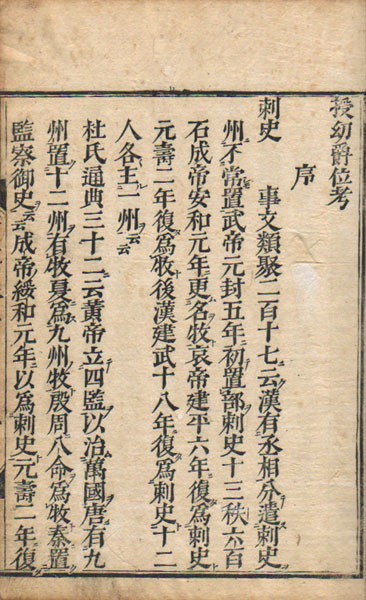 授幼爵位考
序
刺史　事文類聚二百十七云漢有丞相分遣刺史
州不常置武帝元封五年初置部刺史十三秩六百
石成帝安和元年更名牧哀帝建平六年復為刺史
元壽二年復為牧後漢建武十八年復為刺史十二
人各主一州云云
杜氏通典三十二云黃帝立四監以治萬國唐有九
州置十二州有牧夏為九州牧殷周八命為牧秦置
監察御史云云成帝綏和元年以為刺史元壽二年復